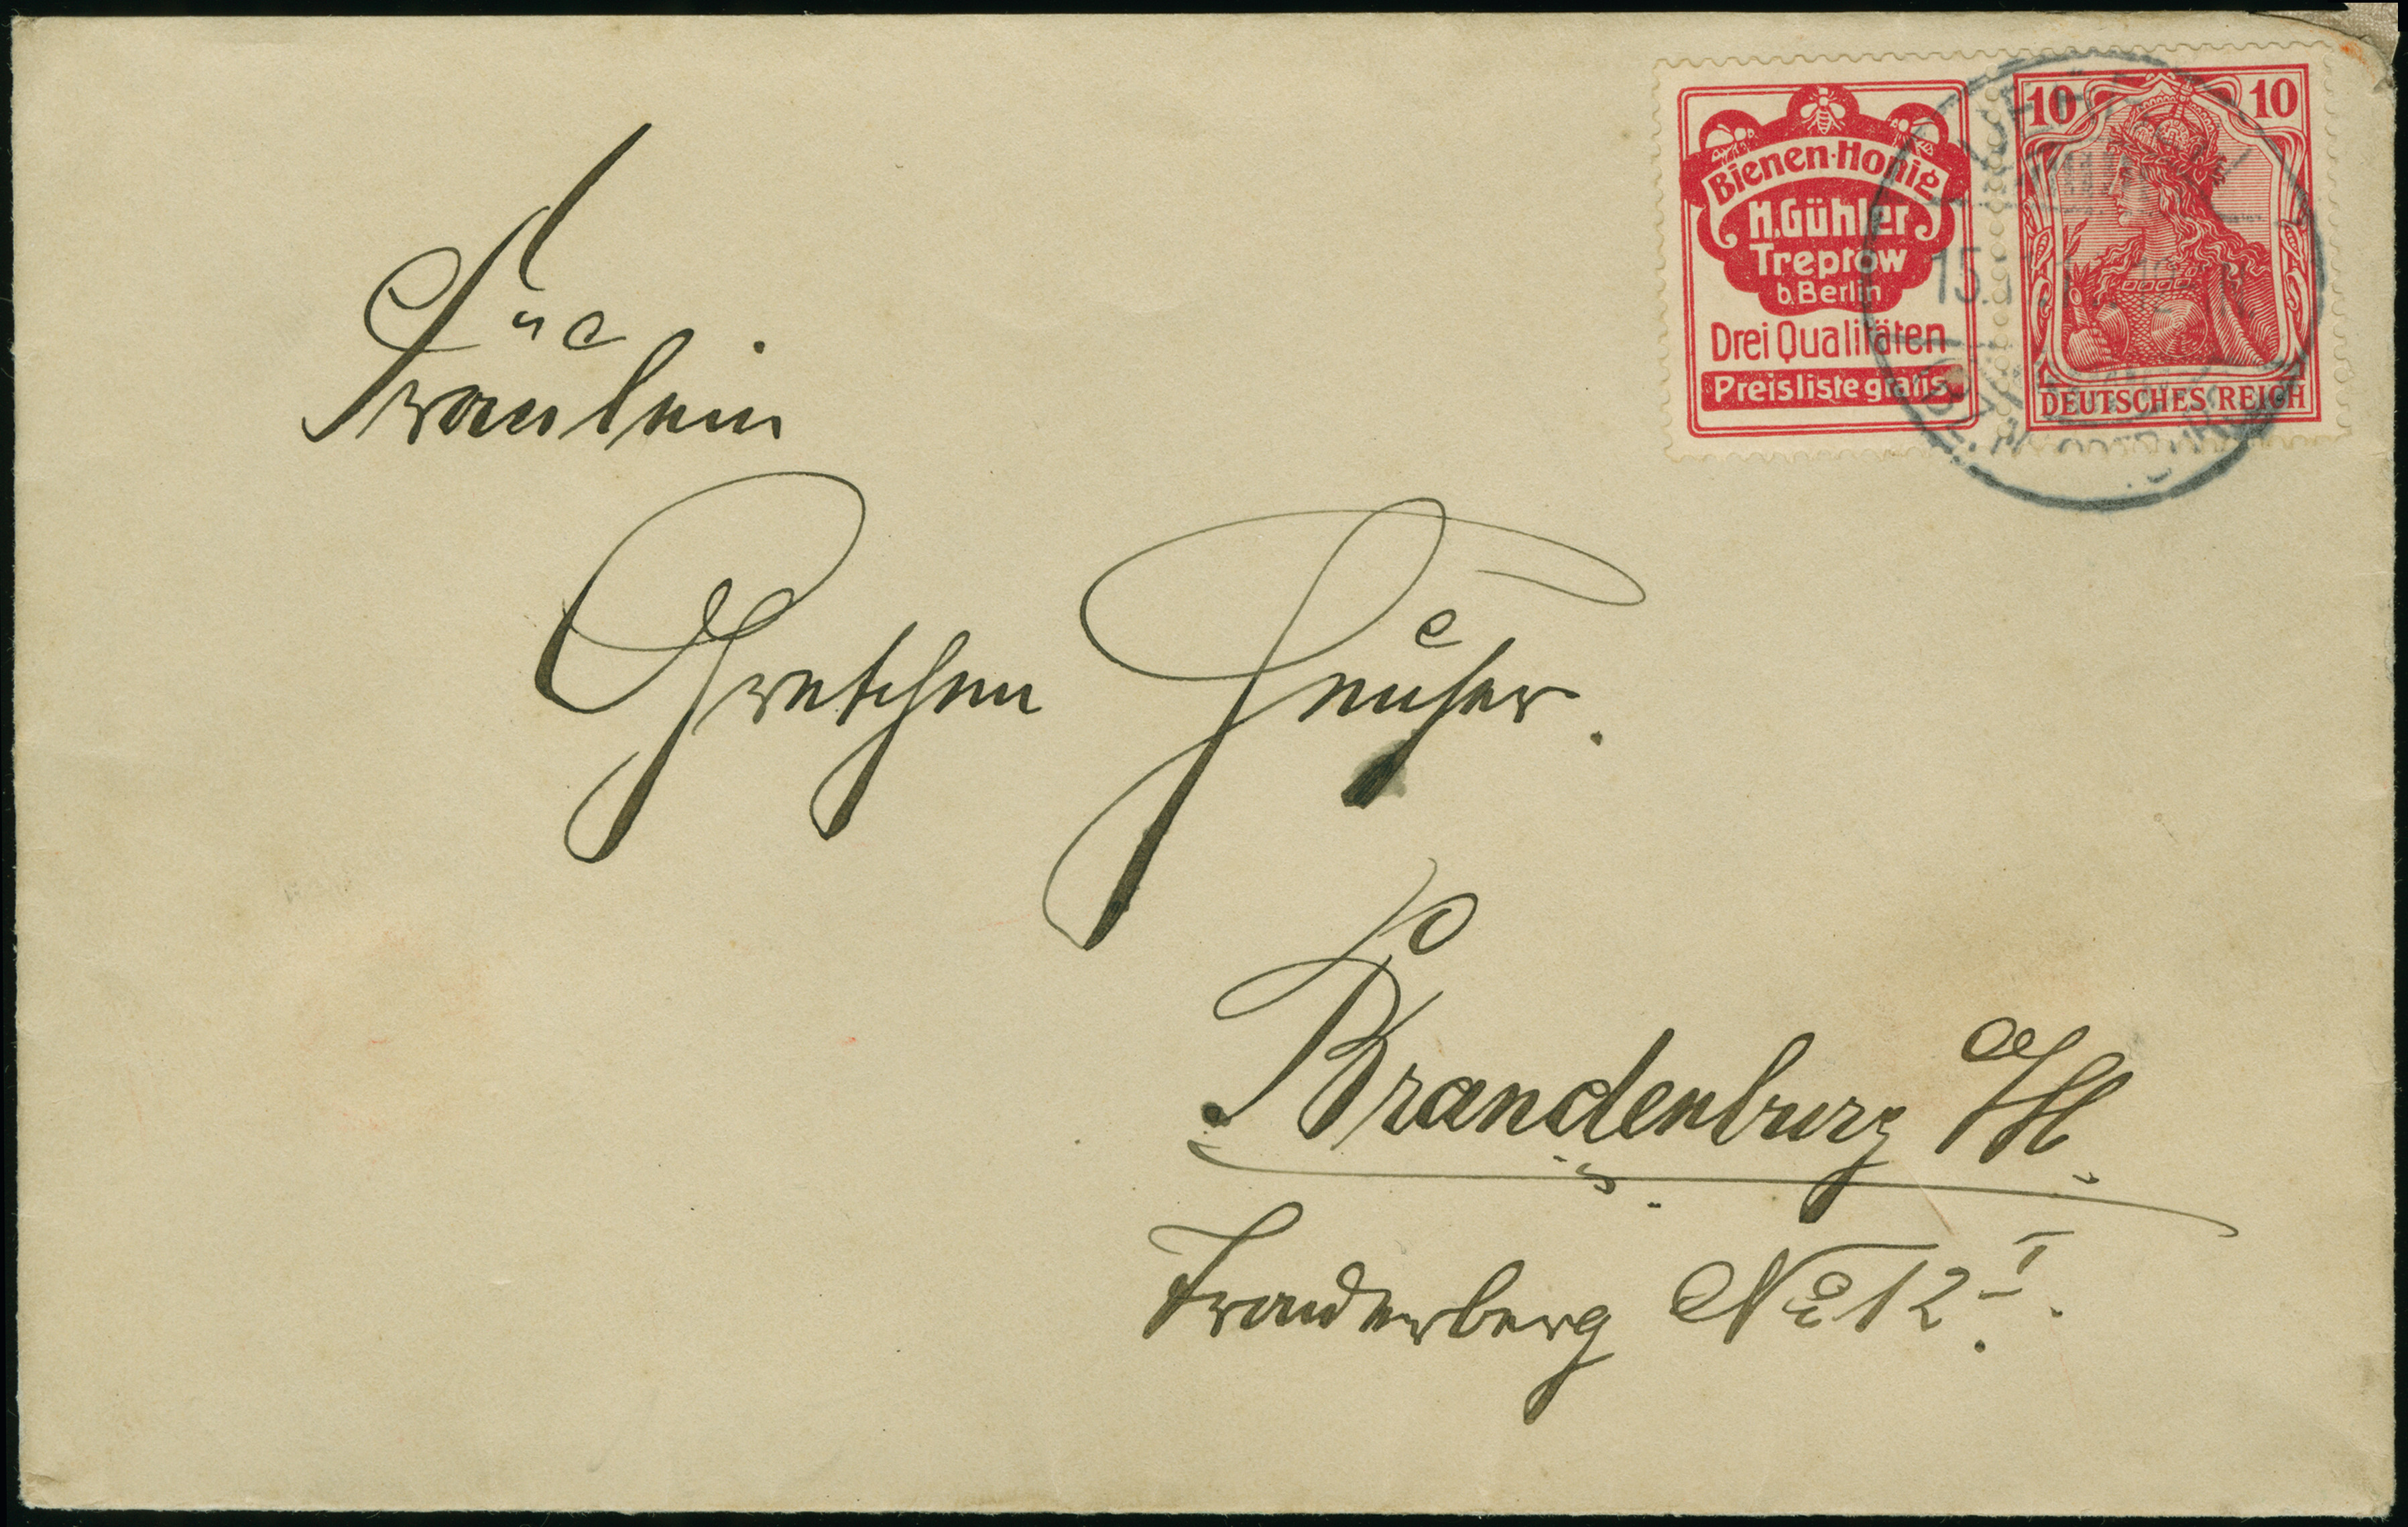 Bienen-Honig
H. Gühler
Treptow
b. Berlin
Drei Qualitäten
Preisliste gratis
10 10
DEUTSCHES REICH
15.
Fräulein
Gretchen
Brandenburg a/H.
No 12 I.